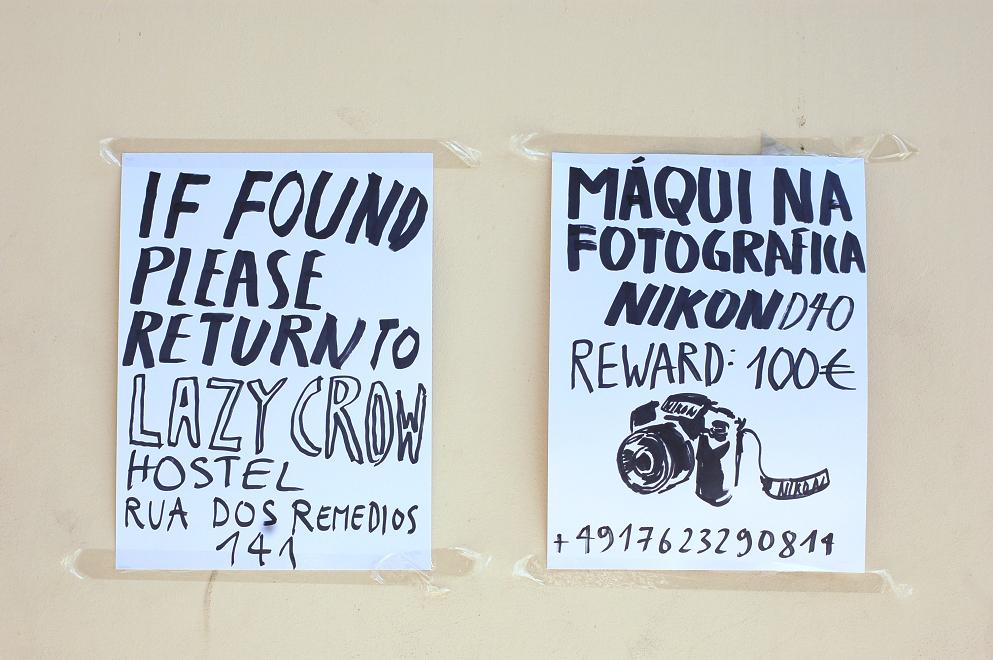 IF FOUND
PLEASE
RETURN TO
LAZY CROW
HOSTEL
RUA DOS REMEDIOS
141
MÁQUINA
FOTOGRAFICA
NIKON D40
REWARD: 100€
NIKON
NIKON
+4917623290814